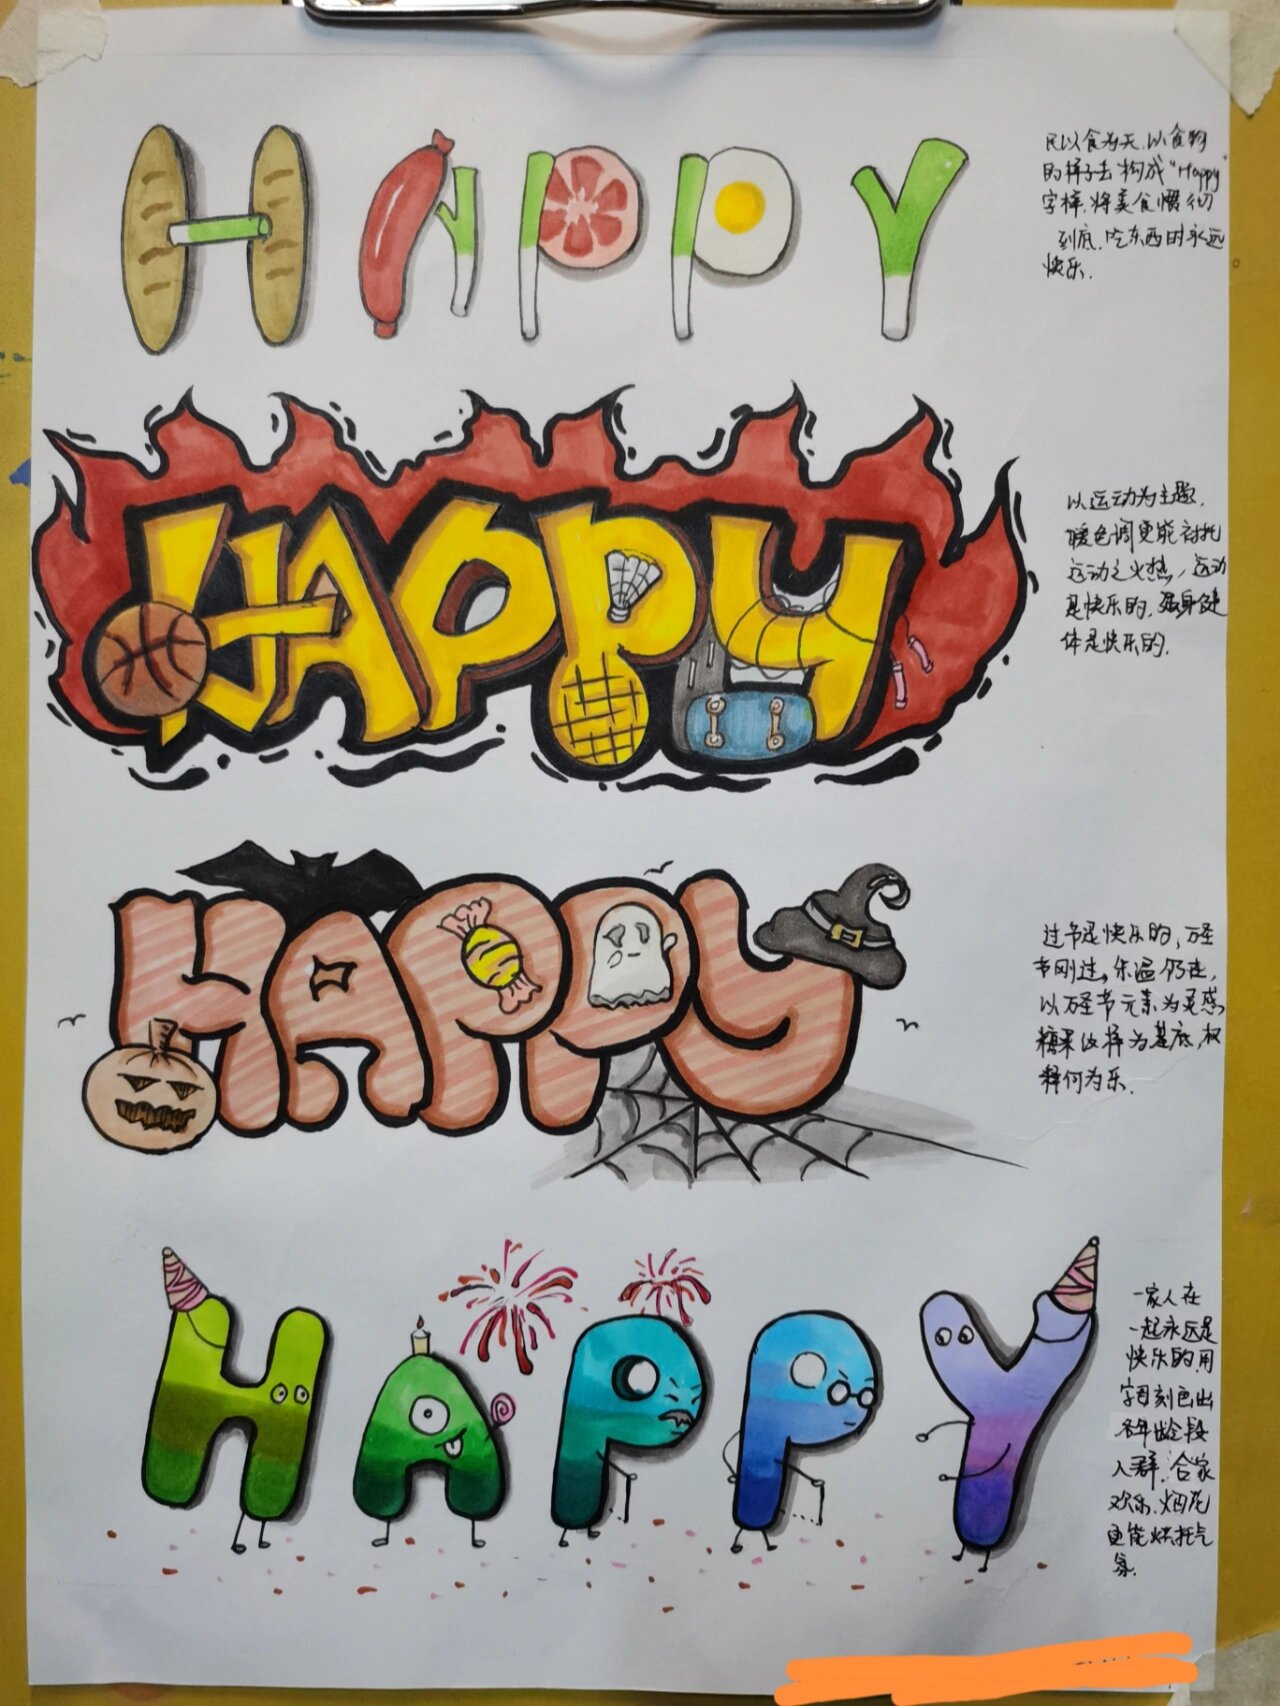 HAPPY
民以食为天.以食物
的样子去构成"Happy"
字样.将美食惯彻
到底.吃东西时永远
快乐.
HAPPY
以运动为主题.
暖色调更能衬托
运动之火热,运动
是快乐的.强身健
体是快乐的.
HAPPY
过节是快乐的,万圣
节刚过,余温仍在,
以万圣节元素为灵感
糖果纹样为基底,
释何为乐.
HAPPY
一家人在
一起永远是
快乐的用
字母刻画出
各年龄段
人群.合家
欢乐.烟花
更能烘托气
氛.